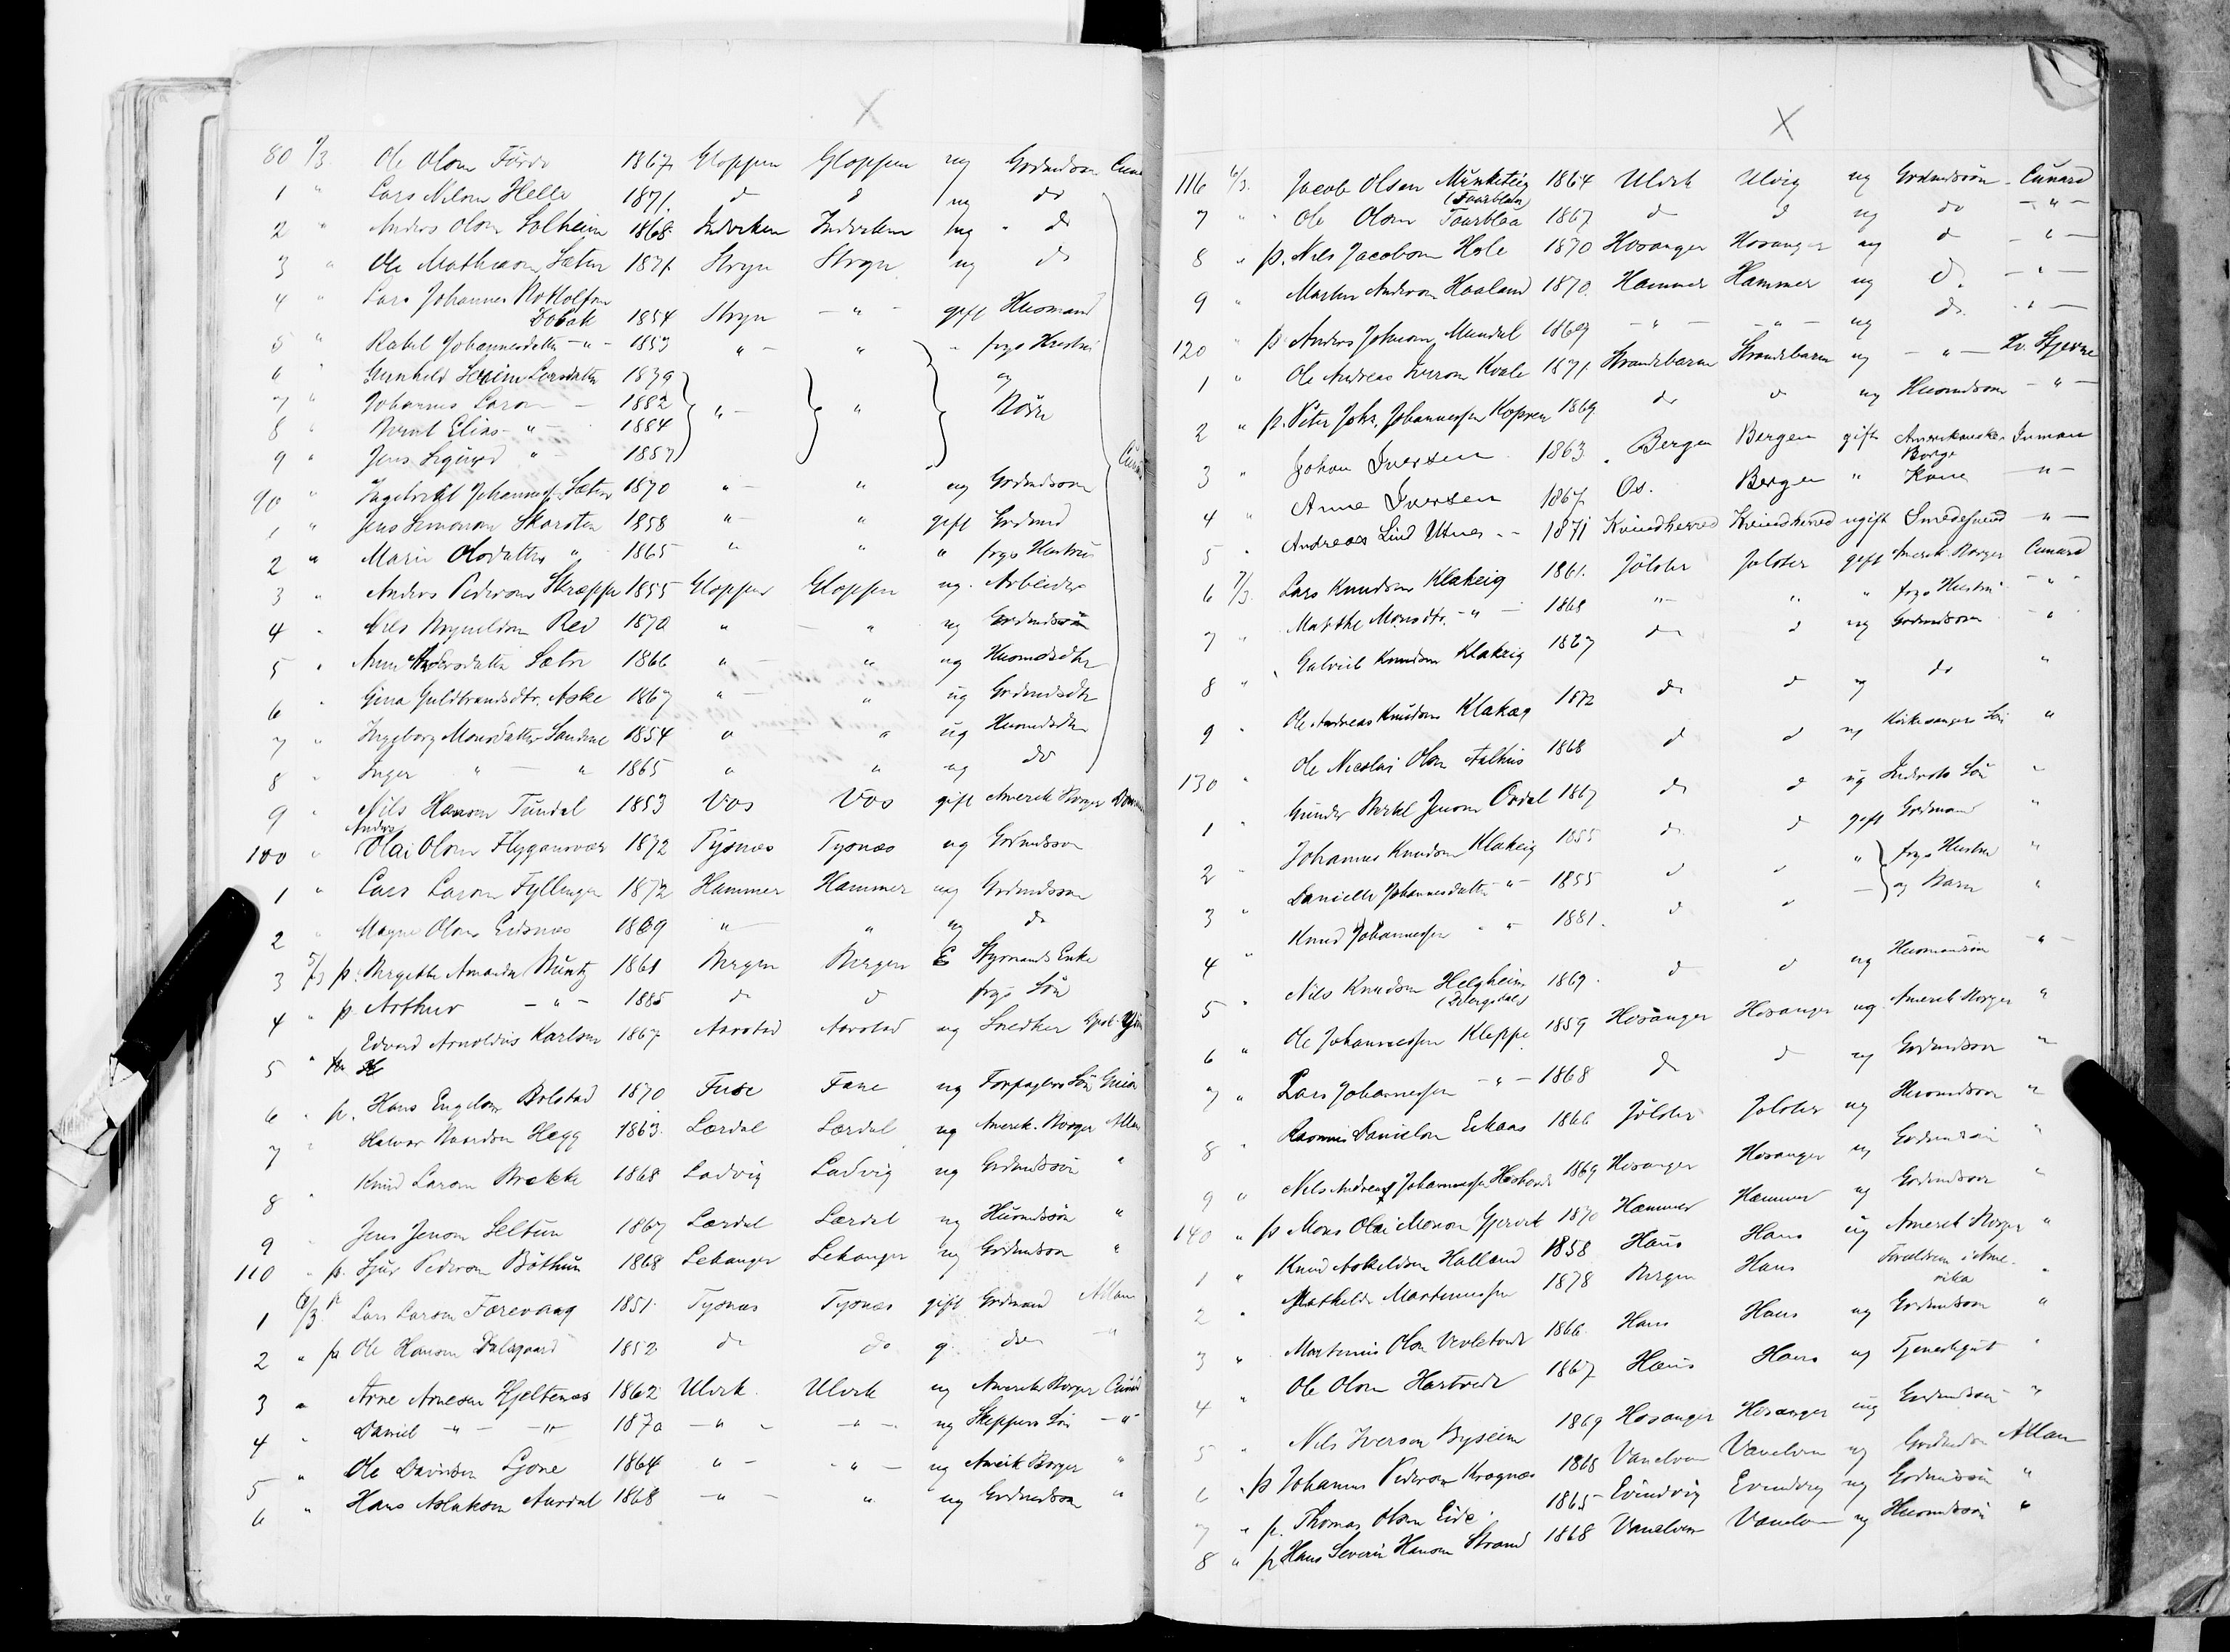 X
80 1/3 Ole Olsen Förde 1867 Gloppen Gloppen ug Grdmdsön
1 " Lars Nilsen Helle 1871 d d ug do
2 " Anders Olsen Solheim 1868 Indviken Indviken ug do
3 " Ole Mathiasen Sæter 1871 Stryn Stryn ug do
4 " Lars Johannes
1854 Stryn - " - gift Husmand
5 " Rakel Johannesdatter - " - 1853 " - " frgs Hustru
6 " Gunhild Larsdatter 1879 og
7 " Johannes Larsen - 1882 " - " Börn
8 " Bernt Elias - " - 1884
9 " Jens Sigurd " - 1887
90 " Ingebrigt Johannes. Sæter 1870 " - " ug Grdmdsön
1 " Jens Simonsen Skarsten 1858 " - " gift Grdmd
2 " Marie Olsdatter " 1865 " " " frgs Hustru
3 " Anders Pedersen Skreppe 1855 Gloppen Gloppen ug. Arbeider
4 " Nils Brynildsen Red 1870 " - " ug Grdmdsön
5 " Anne Andersdatter Sæter 1866 " - " ug Husmdsdtr
6 " Gina Guldbrandsdtr. Aske 1867 " - " ug Grdmdsdtr
7 " Ingeborg Monsdatter Sandene 1854 " " ug Husmdsdtr
8 " Inger " - " 1865 " " ug do
9 " Nils Hansen Tundal 1853 Vos Vos gift Amerik Borger
Anders
100 " Olai Olsen Flygansvær 1872 Tysnæs Tysnæs ug Grdmdssön
1 " Lars Larsen Fyllingen 1872 Hammer Hammer ug Grdmdsön
2 " Magne Olsen Eidsnæs 1869 " - " ug do
3 5/3 p. Bergitte Amanda Müntz 1861 Bergen Bergen E Styrmands Enke
4 " p Arthur - " - 1885 d d frgs Sön
5 " Edvard Arnoldus Karlsen 1867 Aarstad Aarstad ug Snedker
6 " p. Hans Engelsen Bolstad 1870 Fuse Fane ug Forpagters Sön Guion
7 " Halvor Hegg 1863 Lærdal Lærdal ug Amerik. Borger Allan
8 " Knud Larsen Brekke 1868 Ladvig Ladvig ug Grdmdssön "
9 " Jens Jensen Seltun 1867 Lærdal Lærdal ug Husmdsön "
110 " p. Sjur Pedersen Böthun 1868 Lekanger Lekanger ug Grdmdsön "
1 6/3 p Lars Larsen Færevaag 1851 Tysnæs Tysnæs gift Grdmand Allan
2 " p Ole Hansen Dalsgaard 1852 do do g do - "
3 " Arne Arnesen Hjeltenæs 1862 Ulvik Ulvik ug Amerik Borger Cunard
4 " Daniel - " - - " - 1870 - " - - " - ug Skippers Sön - " -
5 " Ole Davidsen Ljone 1864 " - - " - ug Amerik Borger "
6 " Hans Aslaksen Aurdal 1868 - " - " ug Grdmdsön "
X
116 6/3. Jacob Olsen Munketeig 1864 Ulvik Ulvig ug Grdmdssön - Cunard
(Taarblaa)
7 " Ole Olsen Taarblaa 1867 d d ug do - " -
8 " p. Nils Jacobsen Hole 1870 Hosanger Hosanger ug d - " -
9 " Martin Andersen Haaland 1870 Hammer Hammer ug d. - " -
120 " p Anders Johnsen Mundal 1869 - " - - " - ug do. - " -
1 " Ole Andreas Iversen Kvale 1871 Strandebarm Strandebarm ug - " - Hv. Stjerne
2 " p. Peter Johs. Johannessen Kopren 1869 do d ug Husmdsön - " -
3 " Johan Iversen 1863. Bergen Bergen gift Amerikanske Inman
Borger
4 " Anna Iversen 1867 Os. Bergen " Kone - " -
5 " Andreas Lind Utnes - - 1871 Kvindherred Kvindherred ugift Smedesvend - " -
6 7/3. Lars Knudsen Klakeig 1861. Jölster Jölster gift Amerik. Borger Cunard
7 " Matthe Monsdtr. - " - 1868 " - " " frgs Hustru - " -
8 " Gabriel Knudsen Klakeig 1867 do d ug Grdmdsön "
9 " Ole Andreas Knudsen Klakeg 1872 do d ug do "
130 " Ole Nicolai Olsen Aalhus 1868 d d ug Kirkesanger Sön "
1 " Gunder Bertel Jensen Ordal 1867 do d ug Inderste Sön "
2 " Johannes Knudsen Klakeig 1855 do d gift Grdmand "
3 " Danielle Johannesdatter - " - 1855 d d " frgs Hustru "
4 " Knud Johannessen " " - 1881. d d - og Barn "
5 " Nils Knudsen Helgheim 1869. d d ug Husmandsön - " -
6 " Ole Johannessen Kleppe 1859 Hosanger Hosanger ug. Amerik Borger "
7 " Lars Johannessen - " - 1868 do d ug Grdmdsön "
8 " Rasmus Danielsen Eikaas 1866 Jölster Jölster ug Husmdsön "
9 " Nils Andreas Johannessen 1869 Hosanger Hosanger ug Grdmdsön "
140 " p Mons Olai Monsen Gjervik 1870 Hammer Hammer ug Grdmdsön "
1 " Knud Askeldsen Halland 1858 Haus Haus ug Amerik Borger "
2 " Mathilde Martinussen 1878 Bergen Haus Forældrene i Ame- "
rika
3 " Martinus Olsen 1866. Haus Haus ug Grdmdsön "
4 " Ole Olsen Hartveit 1867 Haus Haus ug Tjenestegut "
5 " Nils Iversen Byseim 1869 Hosanger Hosanger ug Grdmdsön "
6 " p Johannes Pedersen Kragnæs 1868 Vanelven Vanelven ug Grdmdsön Allan
7 " p. Thomas Olsen Eide. 1865 Evindvig Evindvig ug Grdmdsön "
8 " p Hans Severin Hansen Strand 1868 Vanelven Vanelven ug Husmdsön "